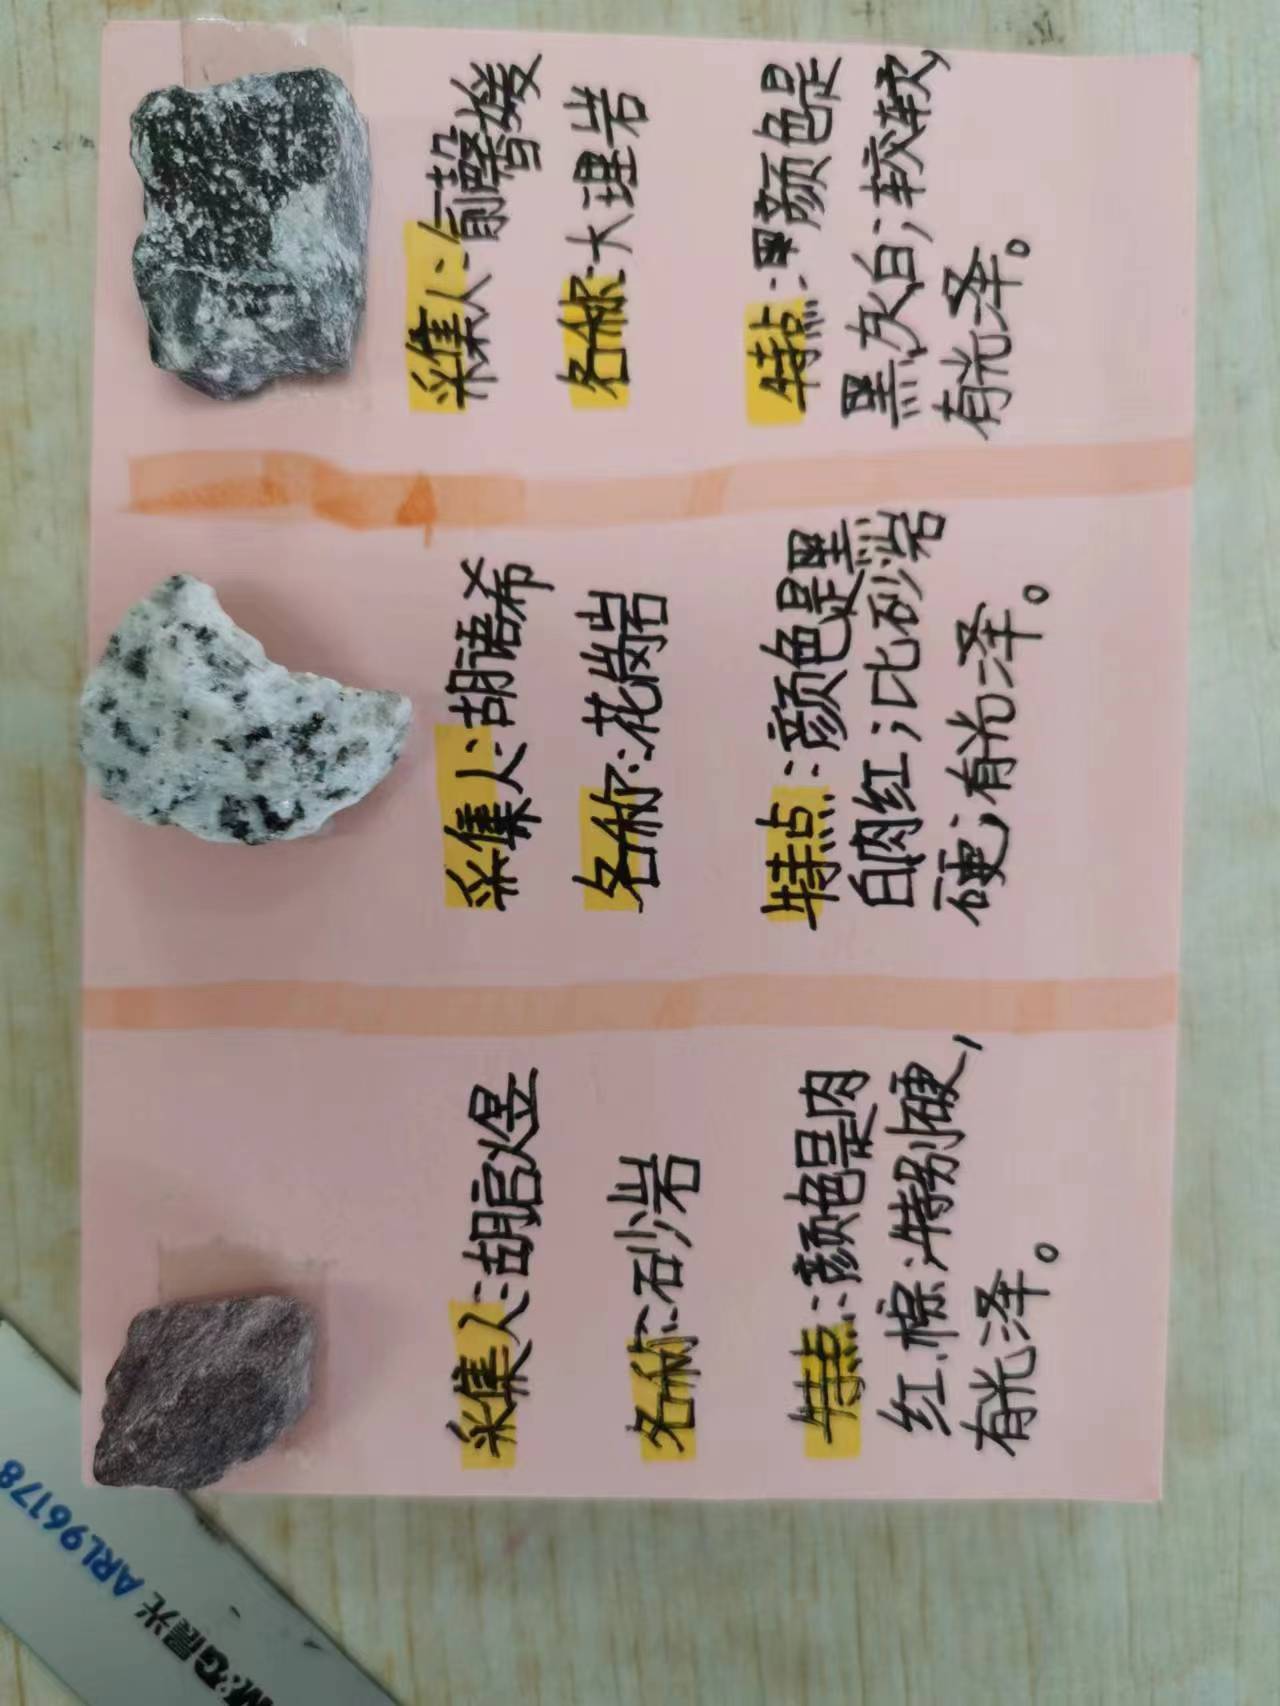 采集人:胡启煜
名称:砂岩
特点:颜色是肉
红.棕;特别硬,
有光泽。
采集人:胡语希
名称:花岗岩
特点:颜色是黑
白肉红;比砂岩
硬;有光泽。
采集人:俞馨媛
名称:大理岩
特点:黑颜色是
黑灰白;较软,
有光泽。
M&G晨光 ARL96178